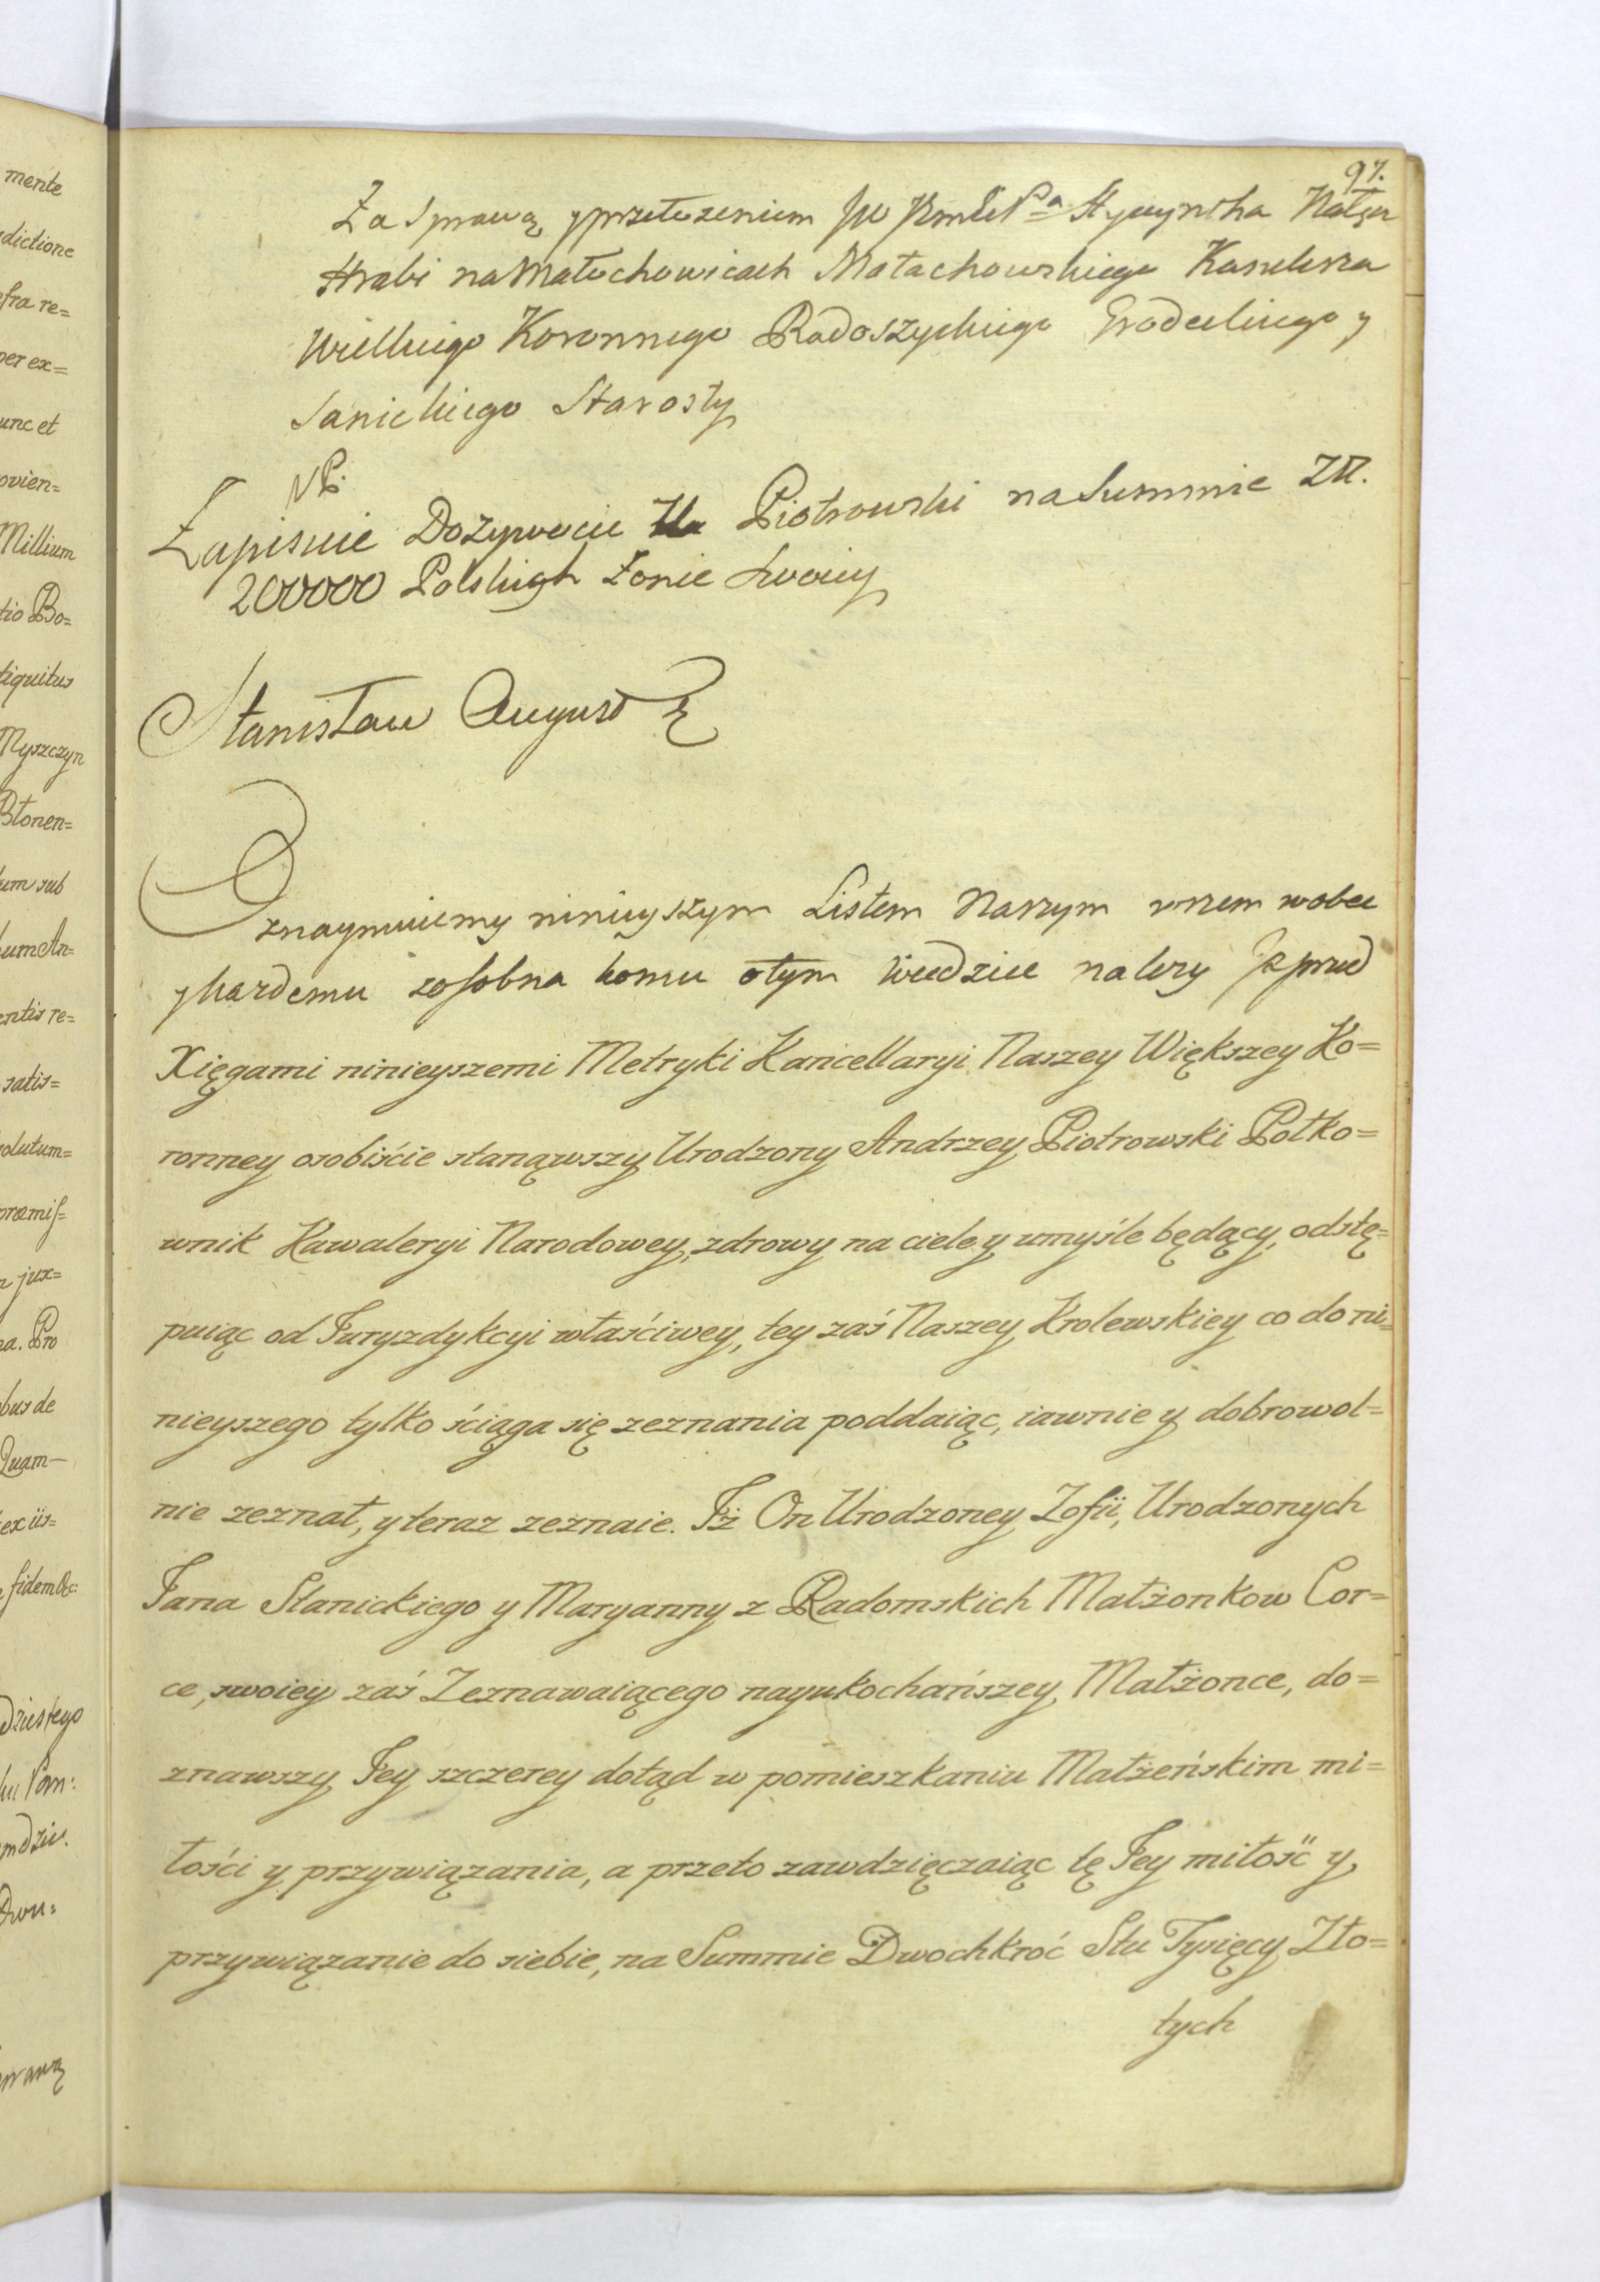 97.
Za Sprawą y przełożeniem JW Hyacyntha Nałęcz
Hrabi na Małachowicach Małachowskiego Kanclerza
Wielkiego Koronnego Radoszyckiego Grodeckiego y
Sanickiego Starosty
Zapisuie Dozywocie Ur. Piotrowski na Summie Zł.
200000 Polskich Żonie Swoiey
Stanisław August
Oznaymuiemy ninieyszym Listem Naszym wszem wobec
y kazdemu zosobna komu otym wiedziec nalezy Iz przed
Xięgami ninieyszemi Metryki Kancellaryi Naszey Większey Ko=
ronney osobiście stanąwszy Urodzony Andrzey Piotrowski Połko=
wnik Kawaleryi Narodowey, zdrowy na ciele y umyśle będący, odstę=
puiąc od Juryzdykcyi właściwey, tey zaś Naszey Krolewskiey co do ni=
nieyszego tylko ściąga się zeznania poddaiąc, iawnie y dobrowol=
nie zeznał, y teraz zeznaie. Jż On Urodzoney Zofii, Urodzonych
Jana Stanickiego y Maryanny z Radomskich Małżonkow Cor=
ce, swoiey zaś Zeznawaiącego nayukochańszey Małżonce, do=
znawszy Jey szczerey dotąd w pomieszkaniu Małżeńskim mi=
łości y przywiązania, a przeto zawdzięczaiąc tę Jey miłość y
przywiązanie do siebie, na Summie Dwochkroć Stu Tysięcy Zło=
tych
mente
dictione
fra re=
per ex=
unc et
ovien=
Millium
tio Bo=
tiquitus
Myszczyn
Błonen=
um sub
um An=
entis re=
satis=
olutum=
præmiss=
jux=
na. Pro
bus de
Quam—
ex iis=
fidem &c:
dziestego